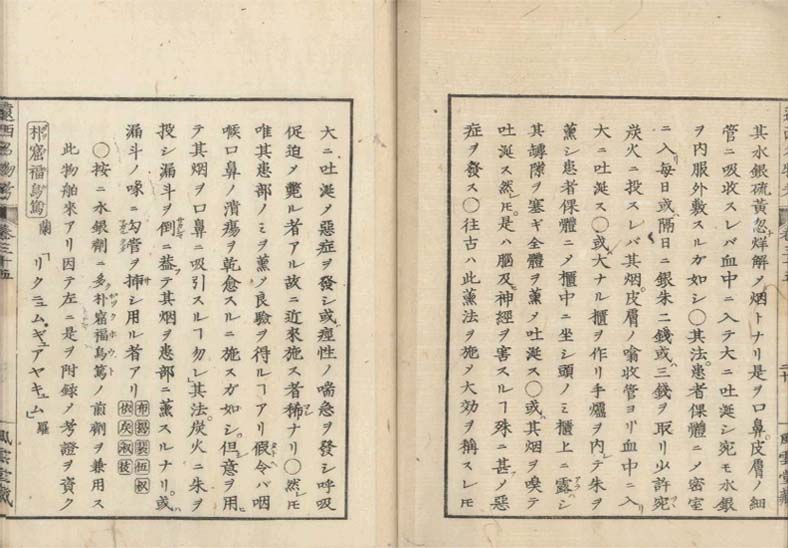 其水銀硫黄忽烊解ノ烟トナリ是ヲ口鼻皮膚ノ細
管ニ吸收スレバ血中ニ入テ大ニ吐涎シ宛モ水銀
ヲ内服外敷スルガ如シ〇其法患者倮體ニメ密室
ニ入リ毎日或ハ隔日ニ銀朱二錢或三錢ヲ取リ少許宛
炭火ニ投スレバ其烟皮膚ノ噏收管ヨリ血中ニ入リ
大ニ吐涎ス〇或ハ大ナル櫃ヲ作リ手爐ヲ内レテ朱ヲ
薫シ患者倮體ニメ櫃中ニ坐シ頭ノミ櫃上ニ露シ
其罅隙ヲ塞ギ全體ヲ薫メ吐涎ス〇或ハ其烟ヲ嗅テ
吐涎ス然レ𪜈是ハ腦及神經ヲ害スルヿ殊ニ甚ノ惡
症ヲ發ス〇往古ハ此薫法ヲ施メ大効ヲ稱スレ𪜈
大ニ吐涎ノ惡症ヲ發シ或ハ痙性ノ喘急ヲ發シ呼吸
促迫メ斃ル者アル故ニ近來施ス者稀ナリ〇然レ𪜈
唯其患部ノミヲ薫メ良驗ヲ得ルヿアリ假令バ咽
喉口鼻ノ潰瘍ヲ乾愈スルニ施スガ如シ但意ヲ用ヒ
テ其烟ヲ口鼻ニ吸引スルヿ勿レ其法炭火ニ朱ヲ
投シ漏斗ヲ倒ニ蓋テ其烟ヲ患部ニ薫スルナリ或ハ
漏斗ノ啄ニ勾管ヲ揷シ用ル者アリ
〇按ニ水銀劑ニ多ク朴窟福烏篤ノ煎劑ヲ兼用ス
此物舶來アリ因テ左ニ是ヲ附録メ考證ヲ資ク
朴窟福烏篤 蘭「リクニュム、ギュアヤキュム」羅
遠西名物考 卷三十五 風雲堂藏